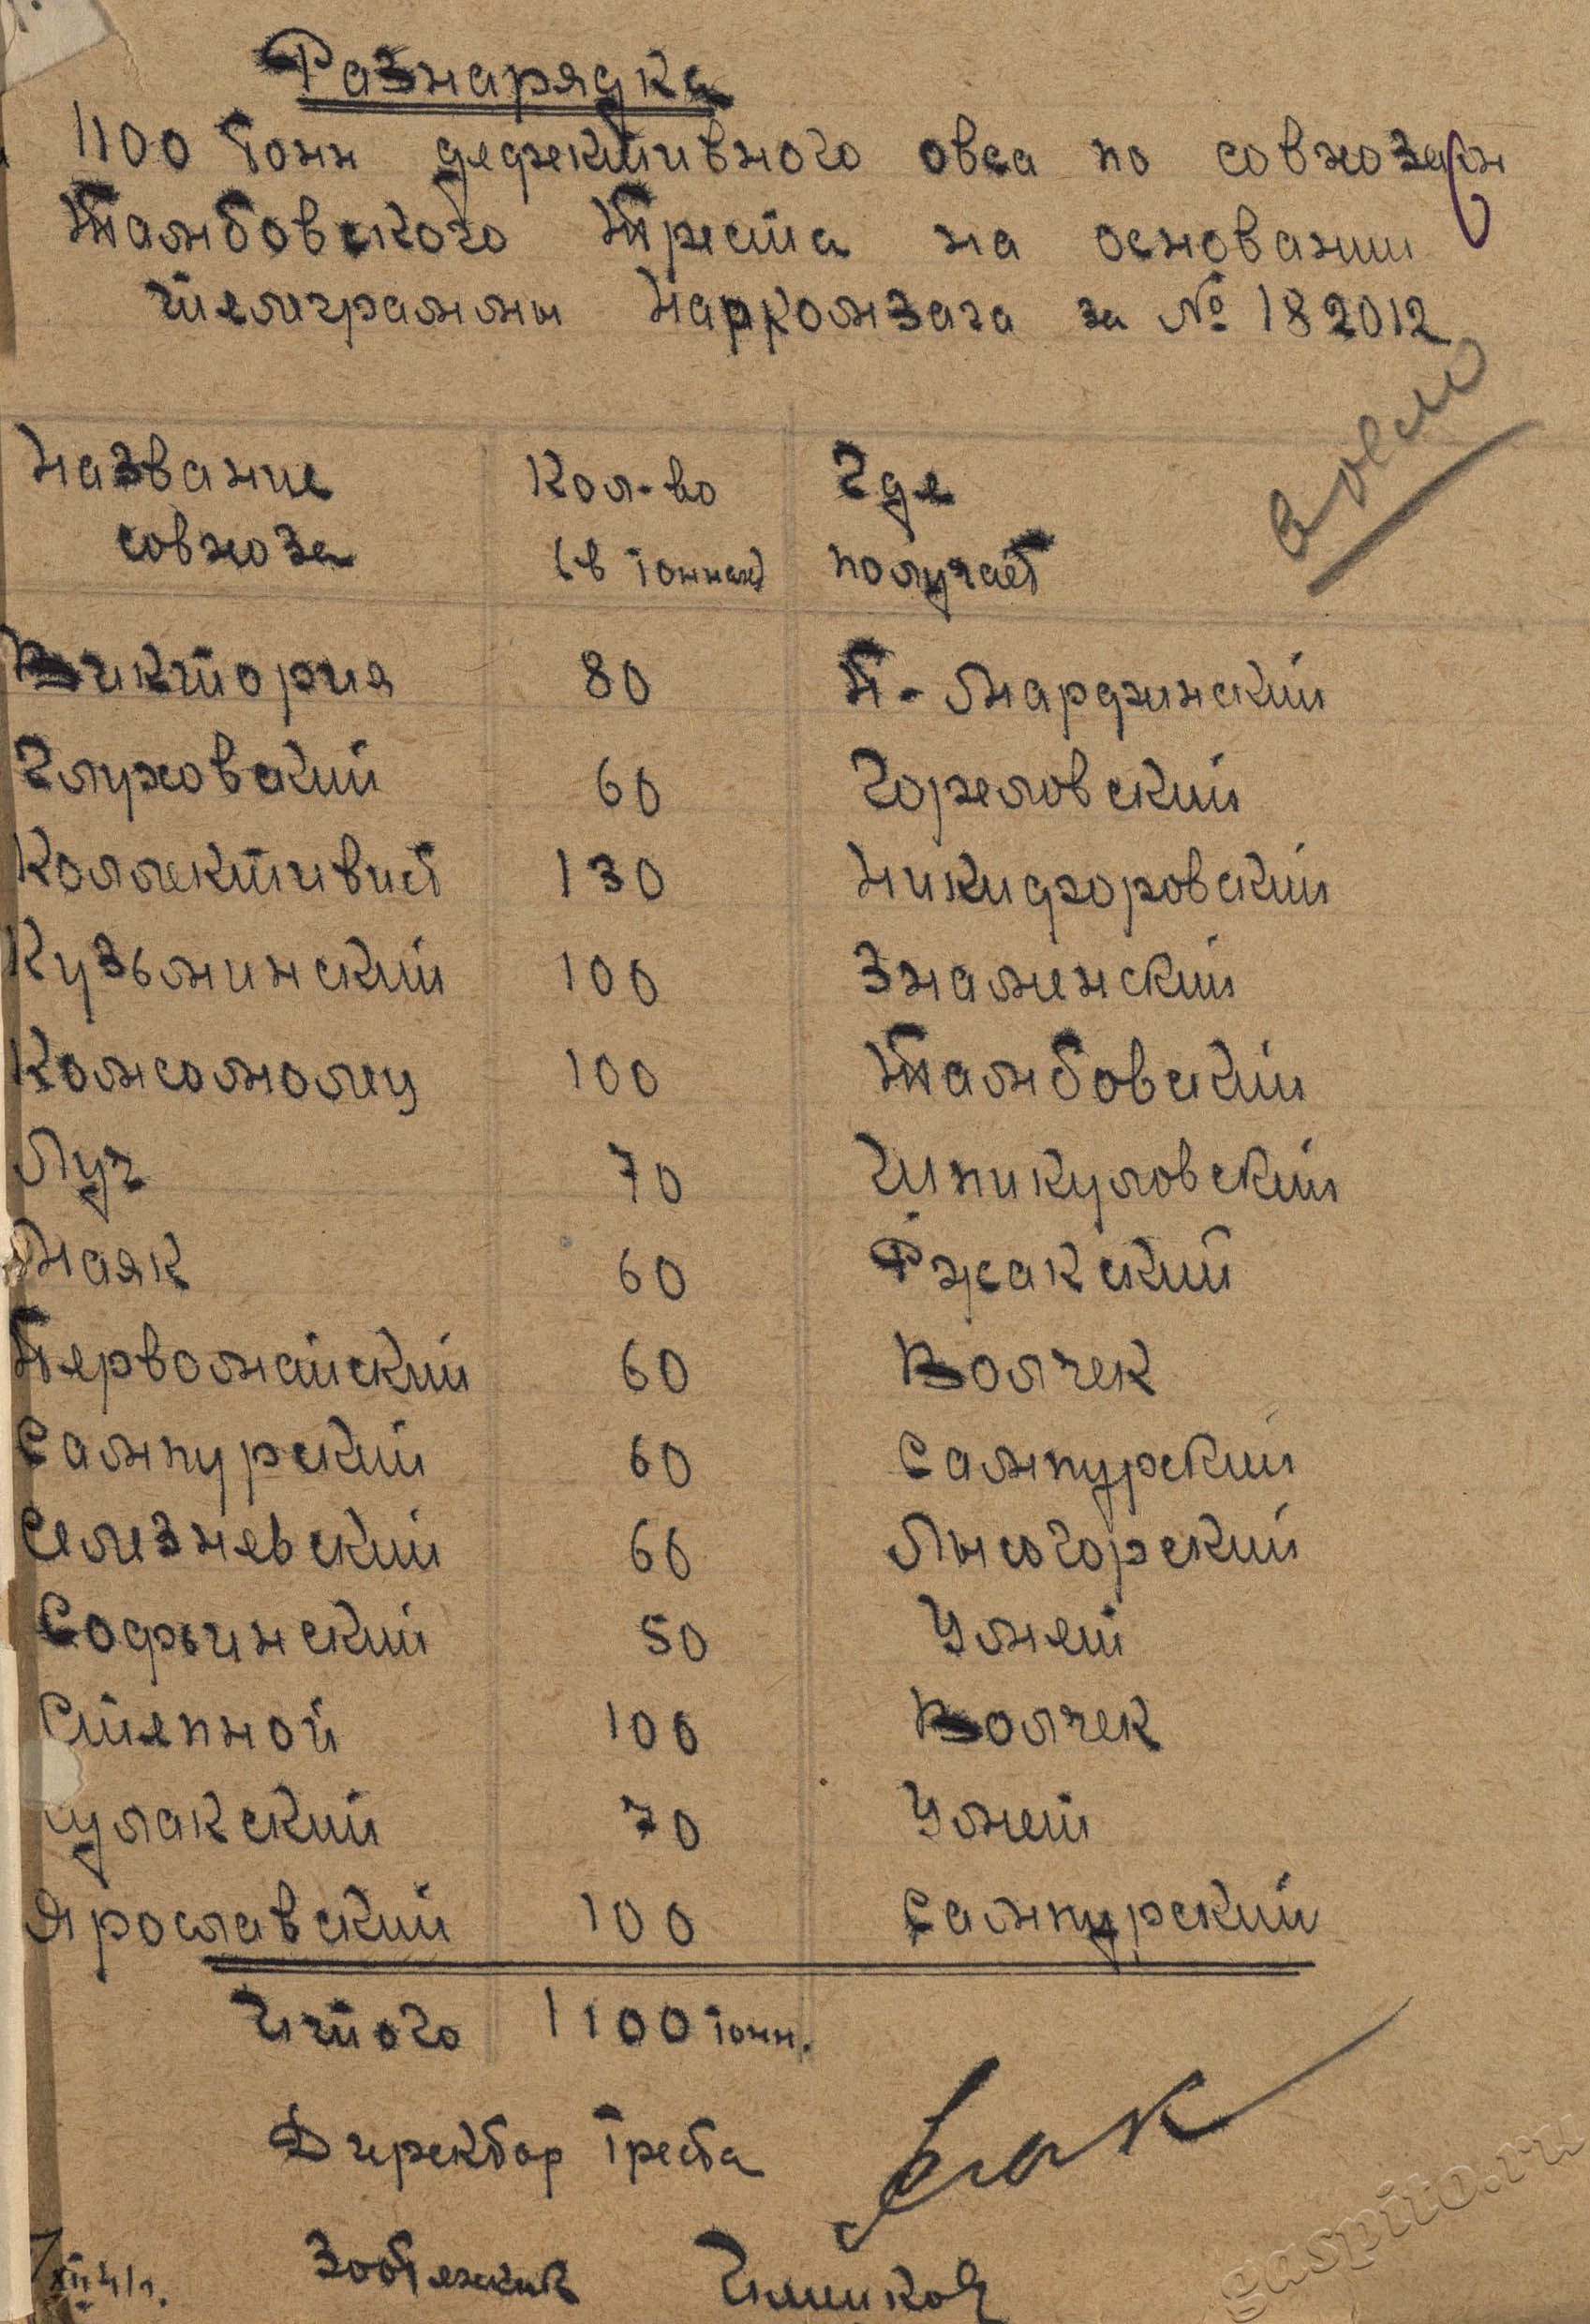 Разнарядка
1100 тонн дефективного овса по совхозам
Тамбовского Треста на основании
телеграммы Наркомзага за № 182012
Название совхоза Кол-во (в тоннах) Где получает
Виктория 80 П-Мардинский
Глуховский 60 Гореловский
Коллективист 130 Никифоровский
Кузьминский 100 Знаменский
Комсомолец 100 Тамбовский
Луч 70 Шпикуловский
Маяк 60 Ржакский
Первомайский 60 Волчек
Сампурский 60 Сампурский
Селезневский 60 Лысогорский
Софьинский 50 Умет
Степной 100 Волчек
улакский 70 Умет
Ярославский 100 Сампурский
Итого 1100 тонн.
Директор Треста
Зоотехник
XII 41 г.
gaspito.ru